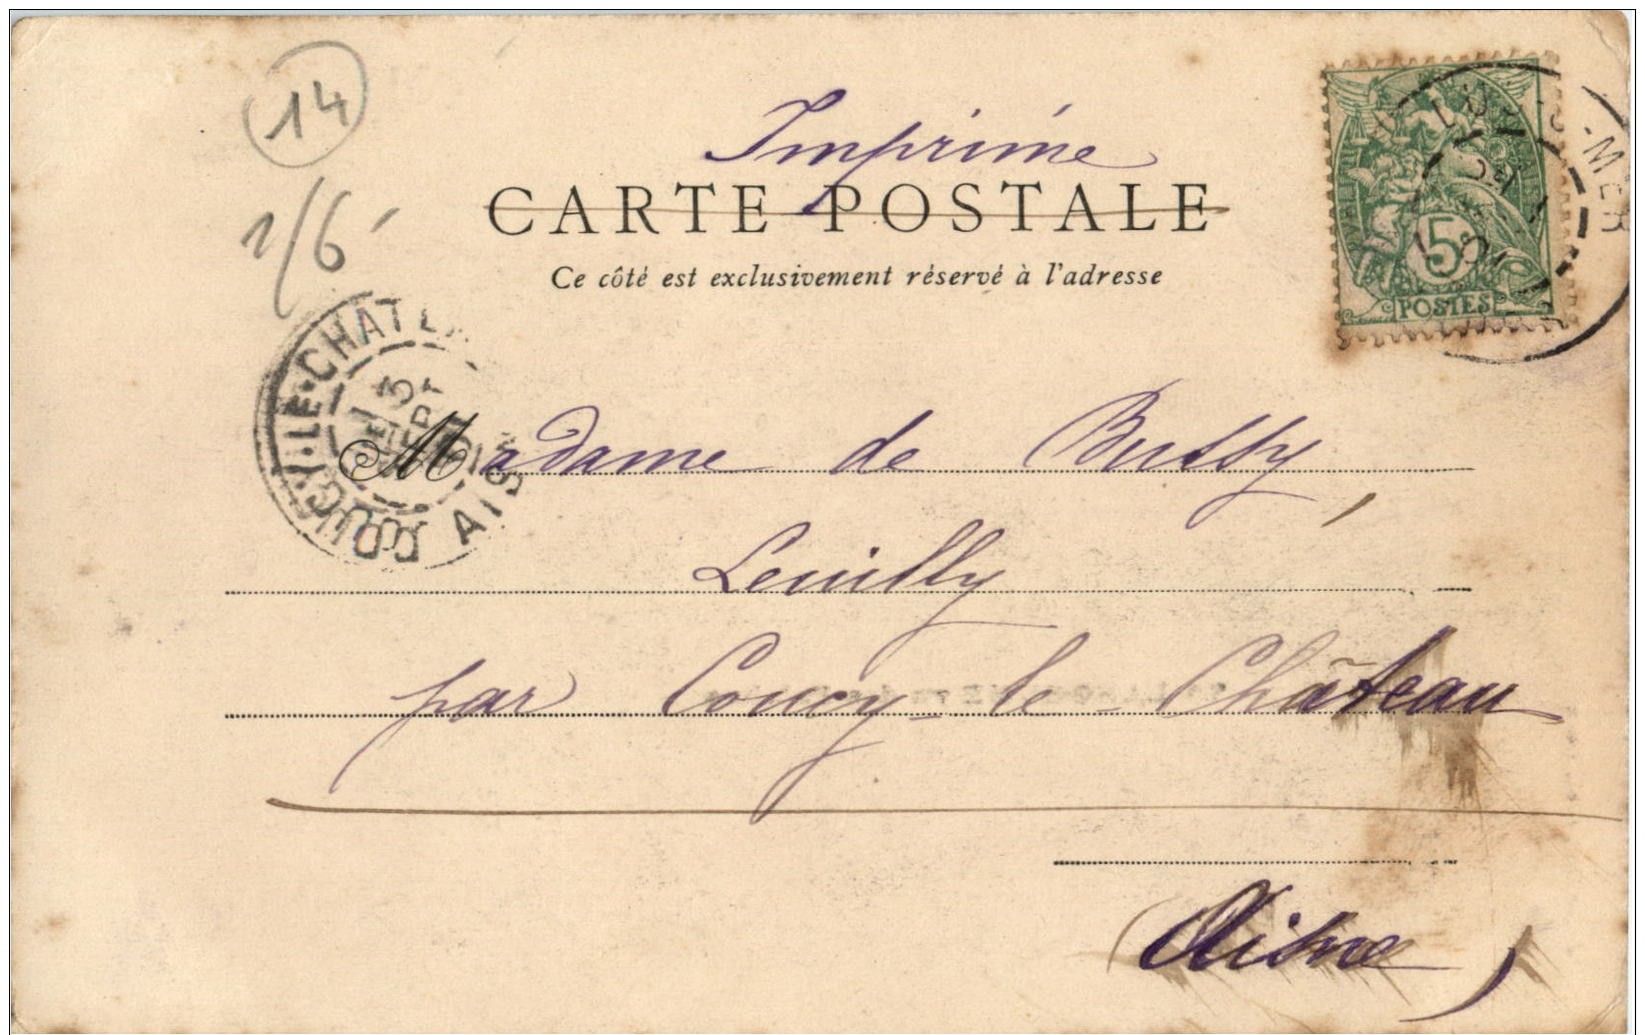 14
1/6
Imprimé
CARTE POSTALE
Ce côté est exclusivement réservé à l'adresse
5c
POSTES
-MER
COUCY-LE-CHATEA
3
AIS
Madame de Bussy,
Leuilly
par Coucy-le-Château
(Aisne)